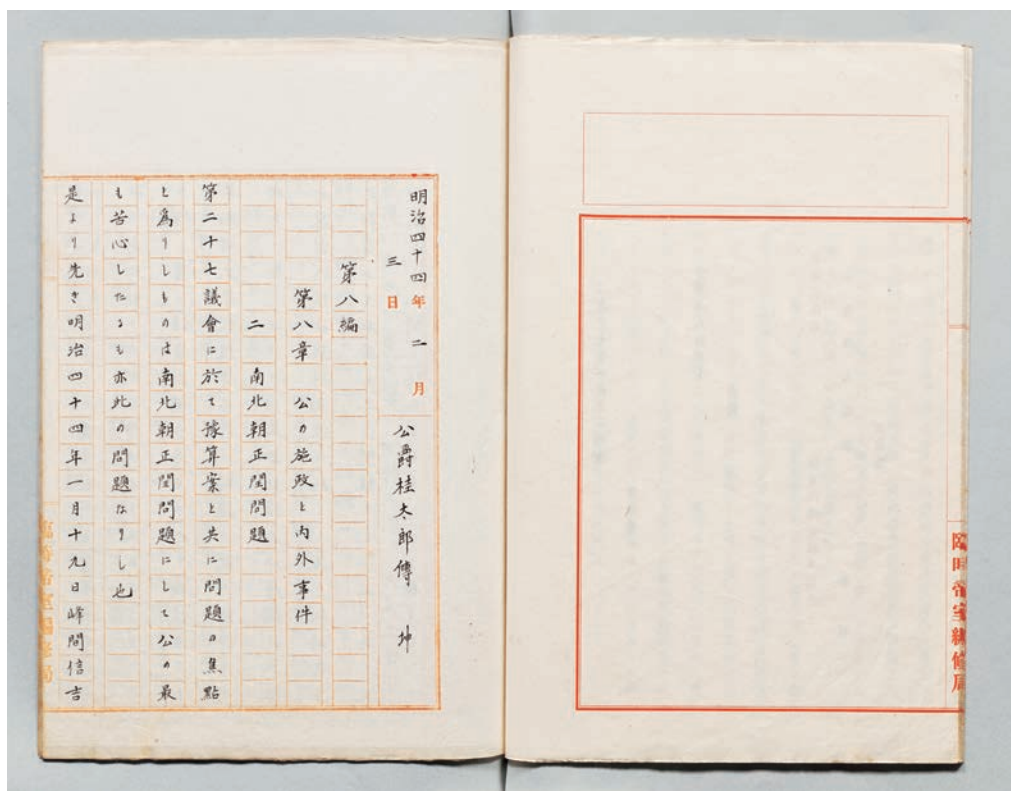 臨時帝室編修局
明治四十四年二月
三日
公爵桂太郎傳 坤
第八編
第八章 公の施政と内外事件
二 南北朝正閏問題
第二十七議會に於て豫算案と共に問題の焦點
と爲りしものは南北朝正閏問題にして公の最
も苦心したるも亦此の問題なりし也
是より先き明治四十四年一月十九日峰間信吉
臨時帝室編修局